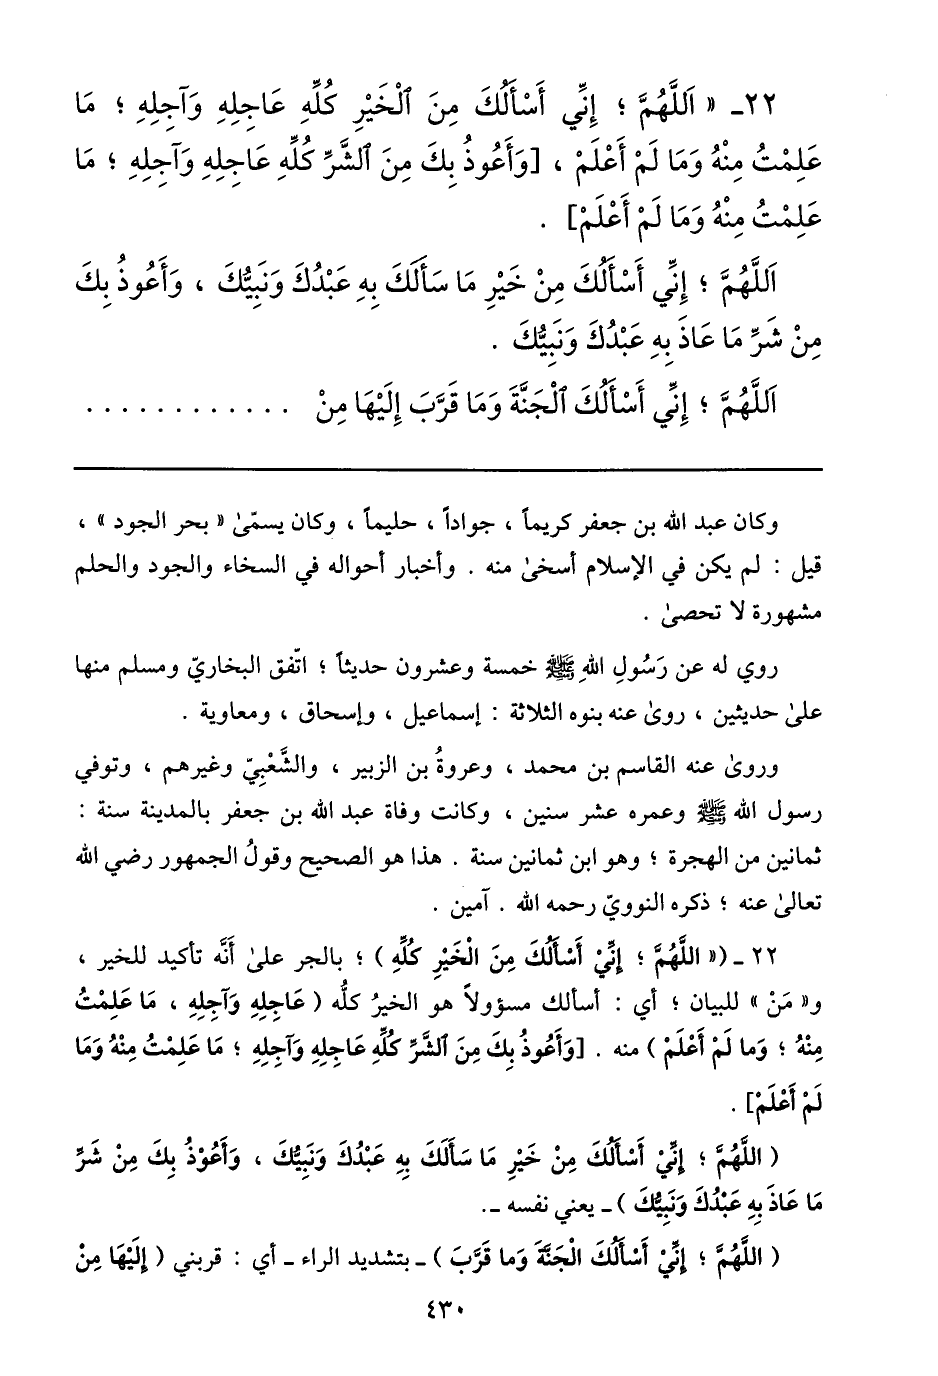 ٢٢ـ « اَللَّهُمَّ ؛ إِنِّي أَسْأَلُكَ مِنَ ٱلْخَيْرِ كُلِّهِ عَاجِلِهِ وَآجِلِهِ ؛ مَا
عَلِمْتُ مِنْهُ وَمَا لَمْ أَعْلَمْ ، [وَأَعُوذُ بِكَ مِنَ ٱلشَّرِّ كُلِّهِ عَاجِلِهِ وَآجِلِهِ ؛ مَا
عَلِمْتُ مِنْهُ وَمَا لَمْ أَعْلَمْ] .
اَللَّهُمَّ ؛ إِنِّي أَسْأَلُكَ مِنْ خَيْرِ مَا سَأَلَكَ بِهِ عَبْدُكَ وَنَبِيُّكَ ، وَأَعُوذُ بِكَ
مِنْ شَرِّ مَا عَاذَ بِهِ عَبْدُكَ وَنَبِيُّكَ .
اَللَّهُمَّ ؛ إِنِّي أَسْأَلُكَ ٱلْجَنَّةَ وَمَا قَرَّبَ إِلَيْهَا مِنْ . . . . . . . . . . . .
وكان عبد الله بن جعفر كريماً ، جواداً ، حليماً ، وكان يسمّىٰ « بحر الجود » ،
قيل : لم يكن في الإسلام أسخىٰ منه . وأخبار أحواله في السخاء والجود والحلم
مشهورة لا تحصىٰ .
روي له عن رَسُولِ اللهِ ﷺ خمسة وعشرون حديثاً ؛ اتّفق البخاريّ ومسلم منها
علىٰ حديثين ، روىٰ عنه بنوه الثلاثة : إسماعيل ، وإسحاق ، ومعاوية .
وروىٰ عنه القاسم بن محمد ، وعروةُ بن الزبير ، والشَّعْبِيّ وغيرهم ، وتوفي
رسول الله ﷺ وعمره عشر سنين ، وكانت وفاة عبد الله بن جعفر بالمدينة سنة :
ثمانين من الهجرة ؛ وهو ابن ثمانين سنة . هذا هو الصحيح وقولُ الجمهور رضي الله
تعالىٰ عنه ؛ ذكره النوويّ رحمه الله . آمين .
٢٢ ـ (« اللَّهُمَّ ؛ إِنِّيْ أَسْأَلُكَ مِنَ الْخَيْرِ كُلِّهِ ) ؛ بالجر علىٰ أَنَّه تأكيد للخير ،
و« مَنْ » للبيان ؛ أي : أسألك مسؤولاً هو الخيرُ كلُّه ( عَاجِلِهِ وَآجِلِهِ ، مَا عَلِمْتُ
مِنْهُ ؛ وَما لَمْ أَعْلَمْ ) منه . [وَأَعُوذُ بِكَ مِنَ ٱلشَّرِّ كُلِّهِ عَاجِلِهِ وَآجِلِهِ ؛ مَا عَلِمْتُ مِنْهُ وَمَا
لَمْ أَعْلَمْ] .
( اللَّهُمَّ ؛ إِنِّيْ أَسْأَلُكَ مِنْ خَيْرِ مَا سَأَلَكَ بِهِ عَبْدُكَ وَنَبِيُّكَ ، وَأَعُوْذُ بِكَ مِنْ شَرِّ
مَا عَاذَ بِهِ عَبْدُكَ وَنَبِيُّكَ ) ـ يعني نفسه ـ.
( اللَّهُمَّ ؛ إِنِّيْ أَسْأَلُكَ الْجَنَّةَ وَما قَرَّبَ ) ـ بتشديد الراء ـ أي : قربني ( إِلَيْهَا مِنْ
٤٣٠